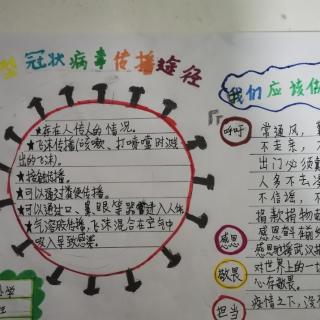 型冠状病毒传播途径
★存在人传人的情况。
★飞沫传播(咳嗽、打喷嚏时溅
出的飞沫)。
★接触传播。
★可以通过粪便传播。
★可以通过口、鼻、眼等器官进入人体
★气溶胶传播,飞沫混合在空气中
吸入导致感染
我们应该
呼吁
常通风,
不走亲,
出门必须戴
人多不去
不信谣,
捐款捐物
感恩
感恩奋斗在
感恩驰援武汉
敬畏
对世界上的一
心存敬畏。
担当
疫情之下,没